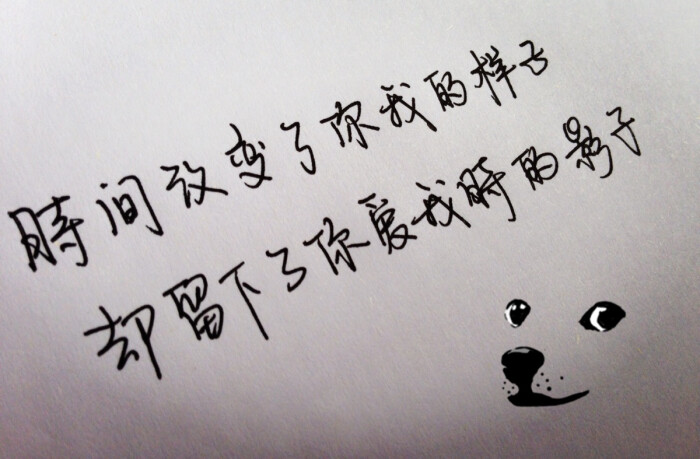 時间改变了你我的样子
却留下了你爱我時的影子